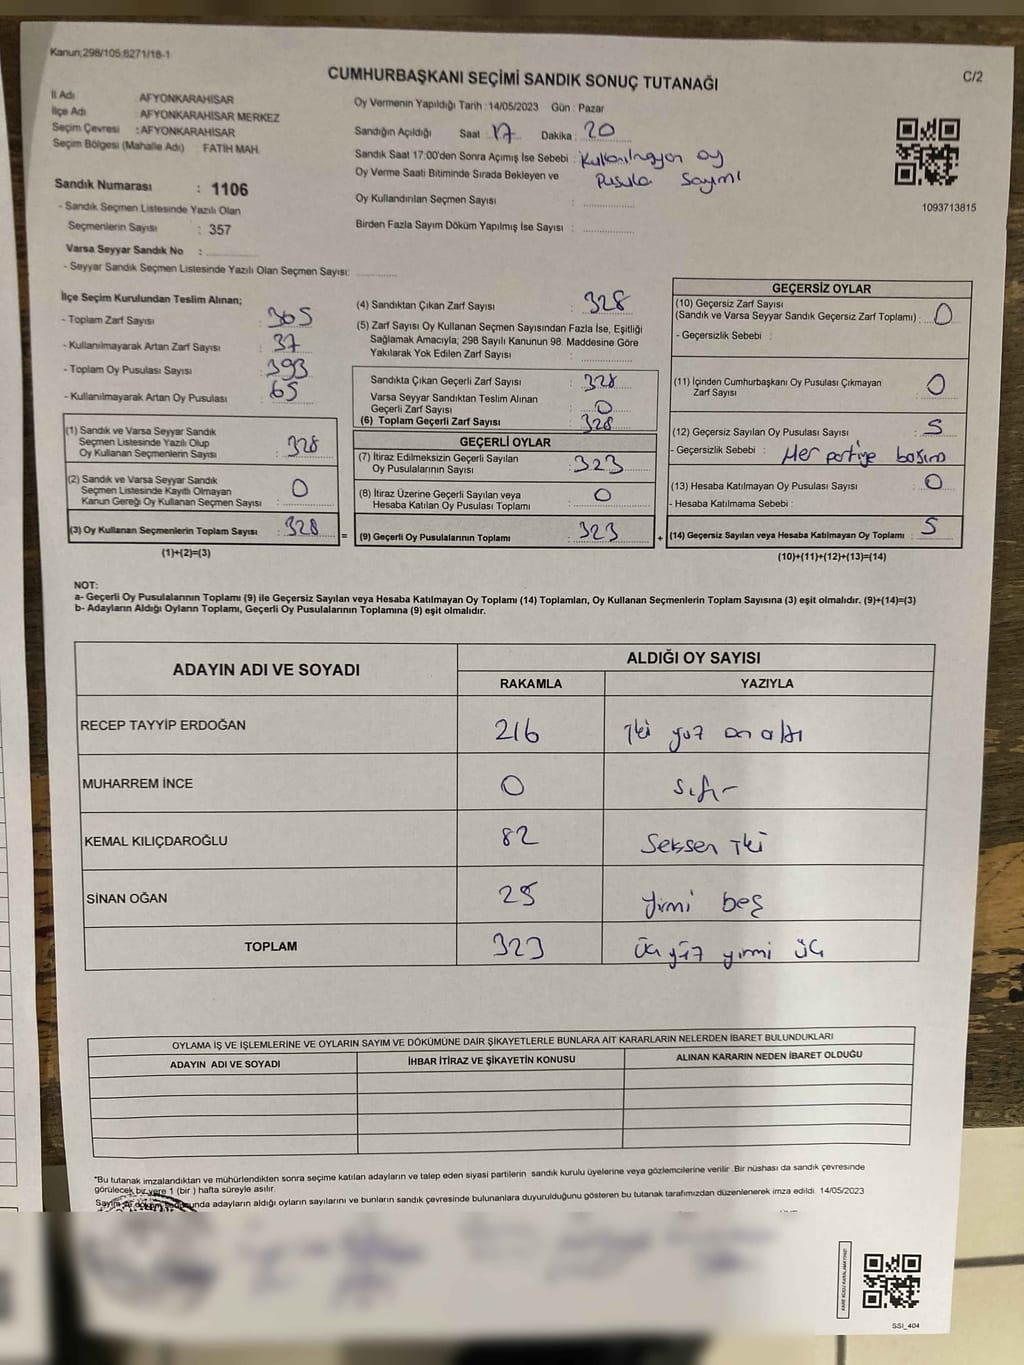 Kanun;298/105;6271/18-1
CUMHURBAŞKANI SEÇİMİ SANDIK SONUÇ TUTANAĞI
C/2
İl Adı : AFYONKARAHİSAR
İlçe Adı : AFYONKARAHİSAR MERKEZ
Seçim Çevresi : AFYONKARAHİSAR
Seçim Bölgesi (Mahalle Adı) : FATİH MAH.
Oy Vermenin Yapıldığı Tarih : 14/05/2023 Gün : Pazar
Sandığın Açıldığı Saat 17 Dakika 20
Sandık Saat 17:00'den Sonra Açımış İse Sebebi : Kullanılmayan oy
Pusula Sayımı
Oy Verme Saati Bitiminde Sırada Bekleyen ve
Oy Kullandırılan Seçmen Sayısı :
Birden Fazla Sayım Döküm Yapılmış İse Sayısı :
1093713815
Sandık Numarası : 1106
- Sandık Seçmen Listesinde Yazılı Olan
Seçmenlerin Sayısı : 357
Varsa Seyyar Sandık No :
- Seyyar Sandık Seçmen Listesinde Yazılı Olan Seçmen Sayısı:
İlçe Seçim Kurulundan Teslim Alınan;
- Toplam Zarf Sayısı : 365
- Kullanılmayarak Artan Zarf Sayısı : 37
- Toplam Oy Pusulası Sayısı : 393
- Kullanılmayarak Artan Oy Pusulası : 65
(1) Sandık ve Varsa Seyyar Sandık
Seçmen Listesinde Yazılı Olup
Oy Kullanan Seçmenlerin Sayısı : 328
(2) Sandık ve Varsa Seyyar Sandık
Seçmen Listesinde Kayıtlı Olmayan
Kanun Gereği Oy Kullanan Seçmen Sayısı : 0
(3) Oy Kullanan Seçmenlerin Toplam Sayısı : 328
(1)+(2)=(3)
(4) Sandıktan Çıkan Zarf Sayısı : 328
(5) Zarf Sayısı Oy Kullanan Seçmen Sayısından Fazla İse, Eşitliği
Sağlamak Amacıyla; 298 Sayılı Kanunun 98. Maddesine Göre
Yakılarak Yok Edilen Zarf Sayısı :
Sandıkta Çıkan Geçerli Zarf Sayısı : 328
Varsa Seyyar Sandıktan Teslim Alınan
Geçerli Zarf Sayısı : 0
(6) Toplam Geçerli Zarf Sayısı : 328
GEÇERLİ OYLAR
(7) İtiraz Edilmeksizin Geçerli Sayılan
Oy Pusulalarının Sayısı : 323
(8) İtiraz Üzerine Geçerli Sayılan veya
Hesaba Katılan Oy Pusulası Toplamı : 0
= (9) Geçerli Oy Pusulalarının Toplamı : 323
GEÇERSİZ OYLAR
(10) Geçersiz Zarf Sayısı
(Sandık ve Varsa Seyyar Sandık Geçersiz Zarf Toplamı) : 0
- Geçersizlik Sebebi :
(11) İçinden Cumhurbaşkanı Oy Pusulası Çıkmayan
Zarf Sayısı : 0
(12) Geçersiz Sayılan Oy Pusulası Sayısı : 5
- Geçersizlik Sebebi : Her partiye basım
(13) Hesaba Katılmayan Oy Pusulası Sayısı : 0
- Hesaba Katılmama Sebebi :
+ (14) Geçersiz Sayılan veya Hesaba Katılmayan Oy Toplamı : 5
(10)+(11)+(12)+(13)=(14)
NOT:
a- Geçerli Oy Pusulalarının Toplamı (9) ile Geçersiz Sayılan veya Hesaba Katılmayan Oy Toplamı (14) Toplamları, Oy Kullanan Seçmenlerin Toplam Sayısına (3) eşit olmalıdır. (9)+(14)=(3)
b- Adayların Aldığı Oyların Toplamı, Geçerli Oy Pusulalarının Toplamına (9) eşit olmalıdır.
ADAYIN ADI VE SOYADI
ALDIĞI OY SAYISI
RAKAMLA YAZIYLA
RECEP TAYYİP ERDOĞAN 216 İki yüz on altı
MUHARREM İNCE 0 sıfır
KEMAL KILIÇDAROĞLU 82 Seksen iki
SİNAN OĞAN 25 yirmi beş
TOPLAM 323 Üç yüz yirmi üç
OYLAMA İŞ VE İŞLEMLERİNE VE OYLARIN SAYIM VE DÖKÜMÜNE DAİR ŞİKAYETLERLE BUNLARA AİT KARARLARIN NELERDEN İBARET BULUNDUKLARI
ADAYIN ADI VE SOYADI İHBAR İTİRAZ VE ŞİKAYETİN KONUSU ALINAN KARARIN NEDEN İBARET OLDUĞU
"Bu tutanak imzalandıktan ve mühürlendikten sonra seçime katılan adayların ve talep eden siyasi partilerin sandık kurulu üyelerine veya gözlemcilerine verilir. Bir nüshası da sandık çevresinde
görülecek bir yere 1 (bir ) hafta süreyle asılır.
Sayım ve döküm sonunda adayların aldığı oyların sayılarını ve bunların sandık çevresinde bulunanlara duyurulduğunu gösteren bu tutanak tarafımızdan düzenlenerek imza edildi. 14/05/2023
KARE KODU KARALAMAYINIZ!
SSI_404